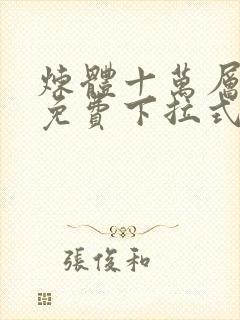 煉體十萬層
免費下拉式
張俊和